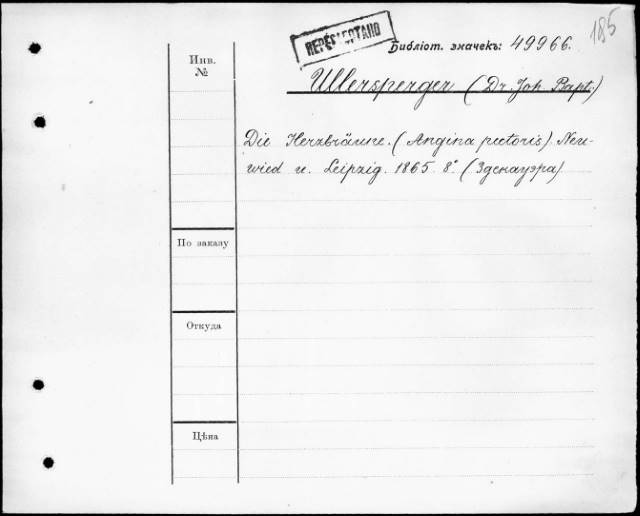 185
ПЕРЕСЛЕДТАНО
Библіот. значекъ: 49966.
Инв.
№
Ullersperger (Dr. Joh. Bapt.)
Die Herzbräune. (Angina pectoris). Neu-
wied u. Leipzig. 1865. 8°. (Зденауэра)
По заказу
Откуда
Цѣна